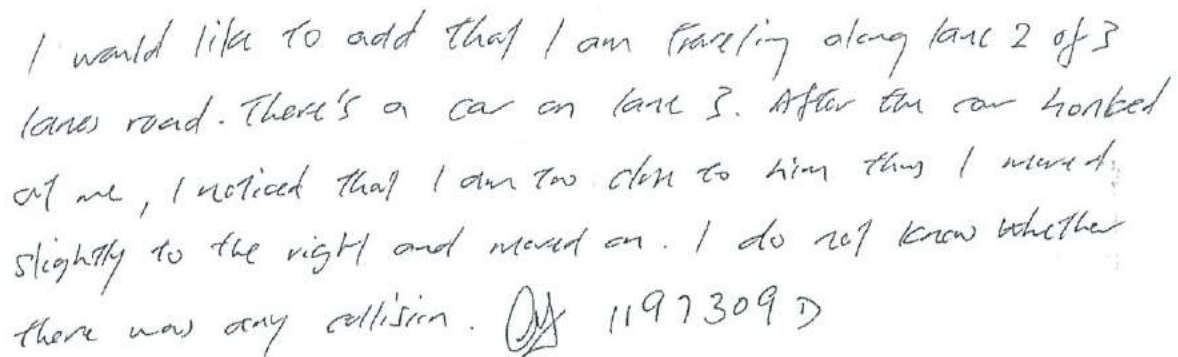 I would like to add that I am traveling along lane 2 of 3
lanes road. There's a car on lane 3. After the car honked
at me, I noticed that I am too close to him thus I moved
slightly to the right and moved on. I do not know whether
there was any collision. 1197309D